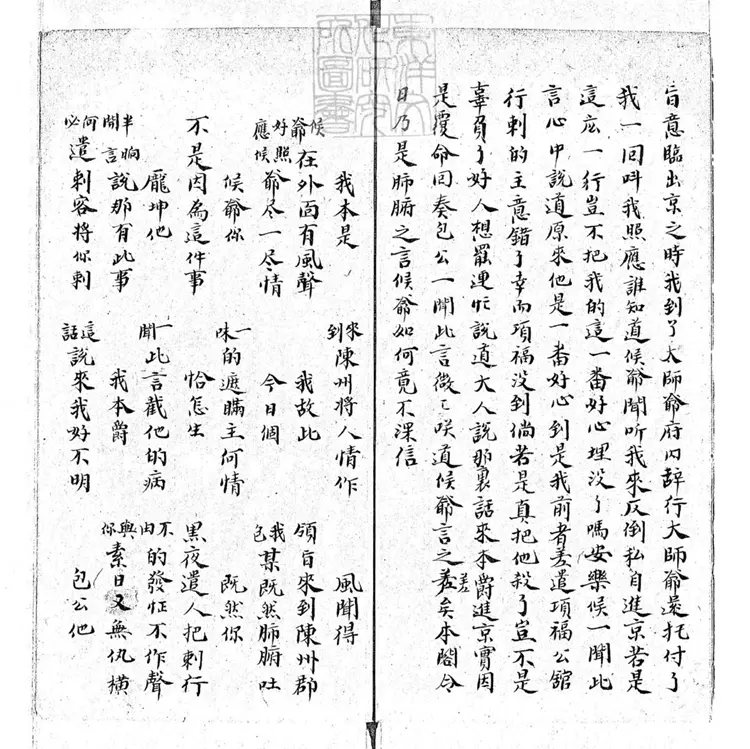 旨意臨出京之時我到了太師爺府內辞行大師爺還托付了
我一回呌我照應誰知道候爺聞听我來反倒私自進京若是
這庅一行豈不把我的這一番好心埋没了嗎安樂候一聞此
言心中說道原來他是一番好心到是我前者差遣項福公舘
行刺的主意錯了幸而項福没到倘若是真把他殺了豈不是
辜負了好人想罷連忙說道大人說那裏話來本爵進京實因
是覆命回奏包公一聞此言微〻咲道候爺言之差矣本閣今
日乃是肺腑之言候爺如何竟不深信
我本是 來到陳州將人情作 風聞得
候爺在外面有風聲 我故此 領旨來到陳州郡
好照應候爺尽一尽情 今日個 我包某既然肺腑吐
候爺你 一味的遮瞞主何情 既然你
不是因為這件事 恰怎生 黑夜遣人把刺行
龐坤他 一聞此言截他的病 不由的發怔不作聲
半晌開言說那有此事 我本爵 與你素日又無仇橫
何必遣刺客將你刺 這話說來我好不明 包公他
東洋文
化研究
所圖書